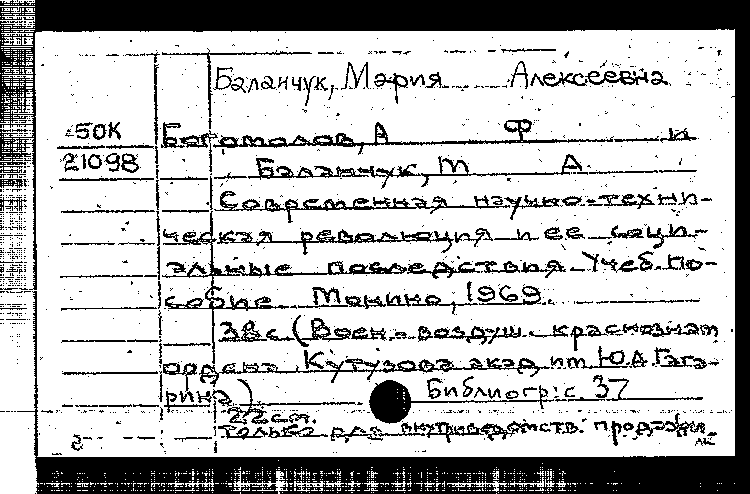 Баланчук, Мария Алексеевна
50К Богомолов, А Ф и
21098 Баланчук, М А.
Современная научно-техни-
ческая революция и ее соци-
альные последствия. Учеб. по-
собие. Монино, 1969.
38с (Воен.-воздуш. краснознам
ордена Кутузова акад. им. Ю.А. Гага-
рина) Библиогр: с. 37
22см.
только для внутриведомств.